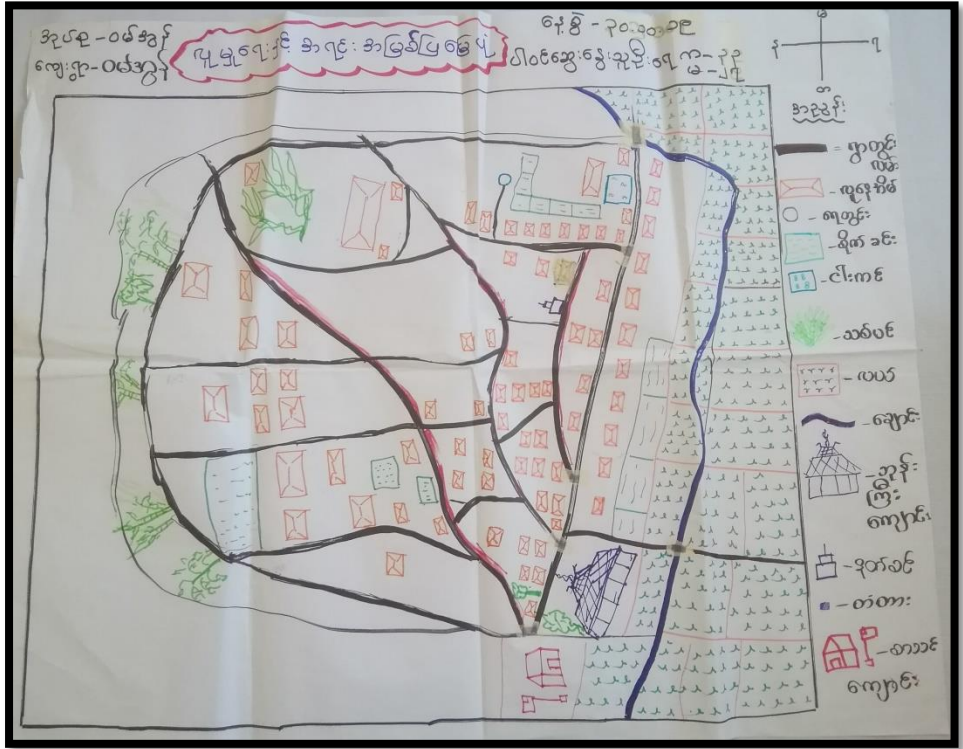 အုပ်စု - ဝမ်အွန်
ကျေးရွာ - ဝမ်အွန်
လူမှုရေးနှင့် အရင်းအမြစ်ပြမြေပုံ
နေ့စွဲ -
ပါဝင်ဆွေးနွေးသူဦးရေ ကျ - ၃၃
မ - ၂၇
န
အညွှန်း
- ရွာတွင်းလမ်း
- လူနေအိမ်
- ရေတွင်း
- စိုက်ခင်း
- ငါးကန်
- သစ်ပင်
- လယ်
- ချောင်း
- ဘုန်းကြီးကျောင်း
- နတ်စင်
- တံတား
- စာသင်ကျောင်း